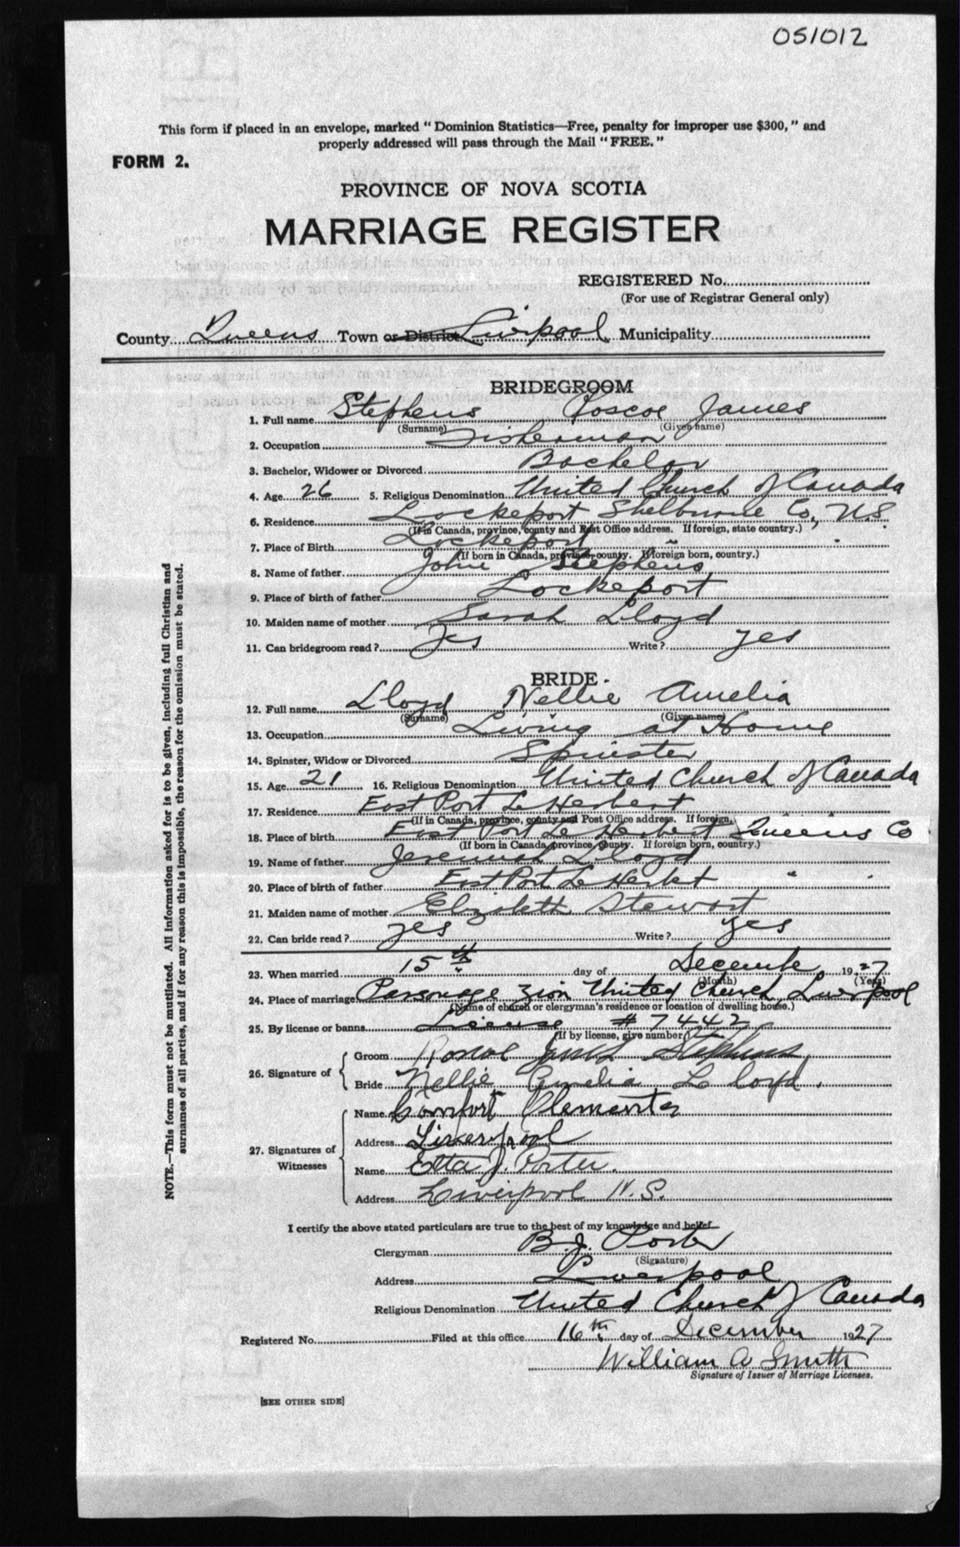 051012
This form if placed in an envelope, marked " Dominion Statistics—Free, penalty for improper use $300, " and
properly addressed will pass through the Mail " FREE. "
FORM 2.
PROVINCE OF NOVA SCOTIA
MARRIAGE REGISTER
REGISTERED No.
(For use of Registrar General only)
County Queens Town or District Liverpool Municipality
BRIDEGROOM
1. Full name Stephens Roscoe James
(Surname) (Given name)
2. Occupation Fisherman
3. Bachelor, Widower or Divorced Bachelor
4. Age 26 5. Religious Denomination United Church of Canada
6. Residence Lockeport Shelburne Co, N.S.
(If in Canada, province, county and Post Office address. If foreign, state country.)
7. Place of Birth Lockeport
(If born in Canada, province, county. If foreign born, country.)
8. Name of father John Stephens
9. Place of birth of father Lockeport
10. Maiden name of mother Sarah Lloyd
11. Can bridegroom read? Yes Write? yes
BRIDE
12. Full name Lloyd Nellie Amelia
(Surname) (Given name)
13. Occupation Living at Home
14. Spinster, Widow or Divorced Spinster
15. Age 21 16. Religious Denomination United Church of Canada
17. Residence East Port Le Herbert
(If in Canada, province, county and Post Office address. If foreign,
18. Place of birth East Port Le Herbert Queens Co
(If born in Canada, province, county. If foreign born, country.)
19. Name of father Jeremiah Lloyd
20. Place of birth of father East Port Le Herbert " "
21. Maiden name of mother Elizibeth Stewart
22. Can bride read? yes Write? yes
23. When married 15th day of December 1927
(Month) (Year)
24. Place of marriage Parsonage Zion United Church Liverpool
(Name of church or clergyman's residence or location of dwelling house.)
25. By license or banns License # 7442
(If by license, give number)
26. Signature of
Groom Roscoe James Stephens
Bride Nellie Amelia Lloyd.
27. Signatures of Witnesses
Name Comfort Clements
Address Liverpool
Name Etta J. Porter
Address Liverpool N.S.
I certify the above stated particulars are true to the best of my knowledge and belief
Clergyman B.J. Porter
(Signature)
Address Liverpool
Religious Denomination United Church of Canada
Registered No. Filed at this office 16th day of December 1927
William A Smith
Signature of Issuer of Marriage Licenses.
[SEE OTHER SIDE]
NOTE.—This form must not be mutilated. All information asked for is to be given, including full Christian and
surnames of all parties, and if for any reason this is impossible, the reason for the omission must be stated.